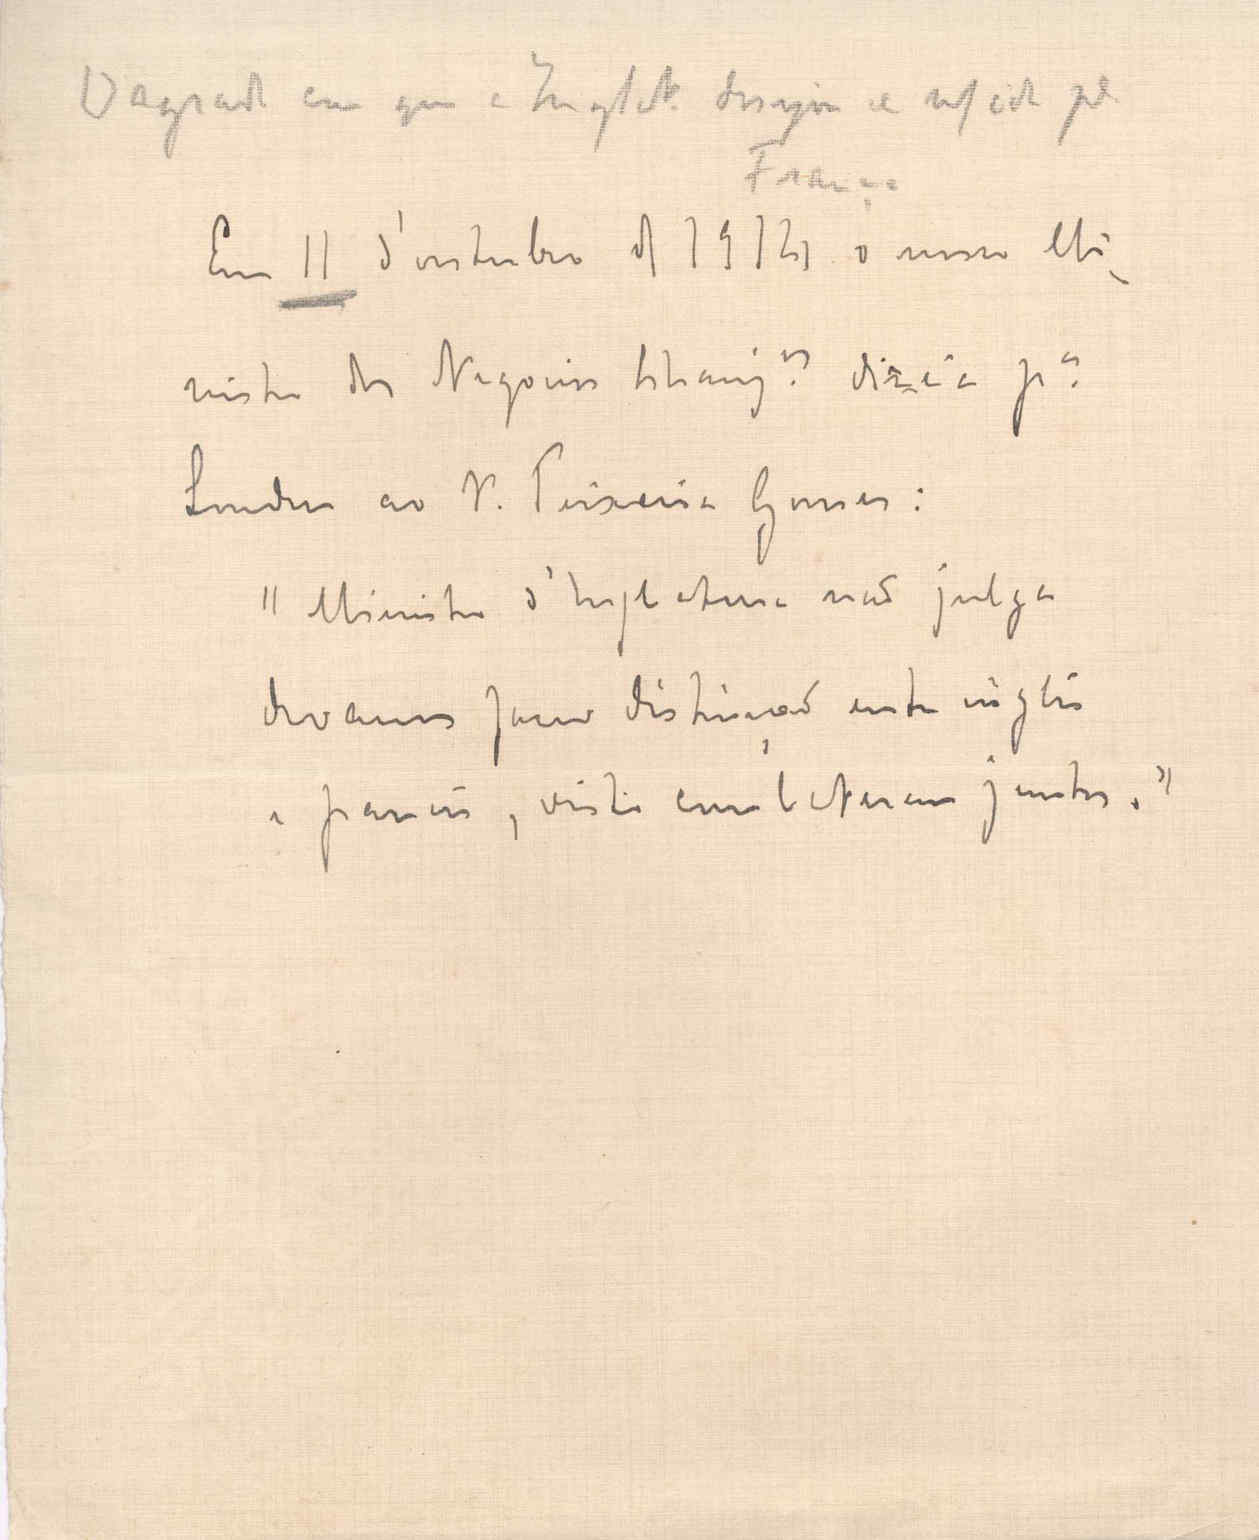 em que a Inglat.
França
Em 11 d'outubro de 1914 o nosso Mi-
nistro dos Negocios Estrang.ros dizia p.a
Londres ao N. Teixeira Gomes:
"Ministro d'Inglaterra não julga
devamos fazer distinção entre inglês
e francês, visto combaterem juntos."